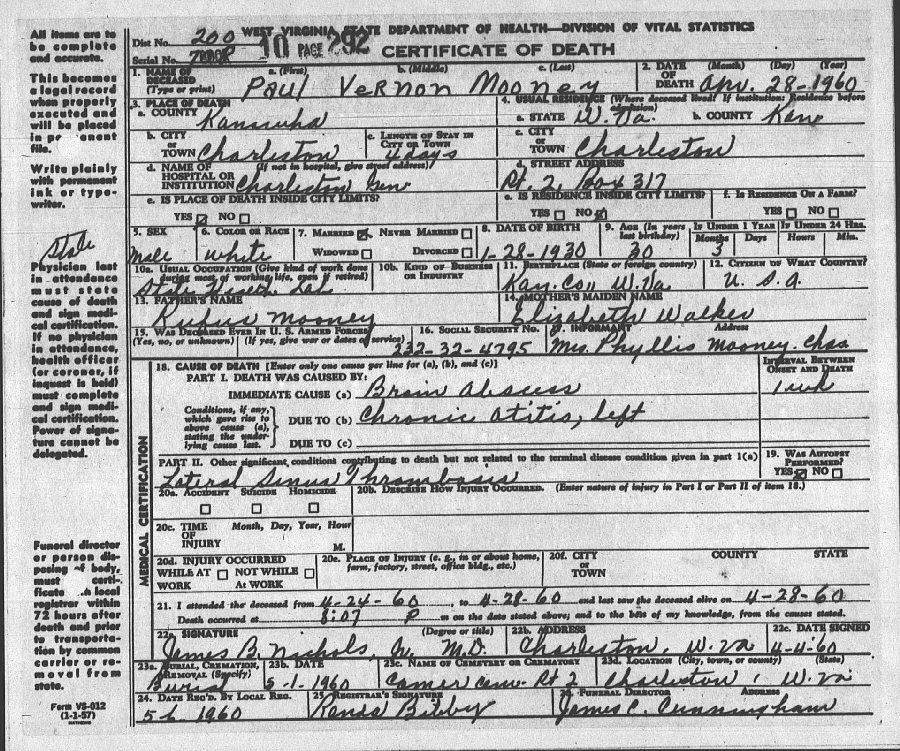 All items are to be complete and accurate.
This becomes a legal record when properly executed and will be placed in p anent file.
Write plainly with permanent ink or typewriter.
State
Physician last in attendance must state cause of death and sign medical certification. If no physician in attendance, health officer (or coroner, if inquest is held) must complete and sign medical certification. Power of signature cannot be delegated.
Funeral director or person disposing of body, must certi-ficate h local registrar within 72 hours after death and prior to transportation by common carrier or removal from state.
Form VS-012
(1-1-57)
WEST VIRGINIA STATE DEPARTMENT OF HEALTH—DIVISION OF VITAL STATISTICS
Dist No. 200
10 PAGE 292
CERTIFICATE OF DEATH
Serial No.
1. NAME OF DECEASED (Type or print) a. (First) b. (Middle) c. (Last)
Paul Vernon Mooney
2. DATE OF DEATH (Month) (Day) (Year)
Apr. 28-1960
3. PLACE OF DEATH
a. COUNTY Kanawha
4. USUAL RESIDENCE (Where deceased lived? If institution: Residence before admission)
a. STATE W. Va. b. COUNTY Kan
b. CITY OR TOWN Charleston
c. LENGTH OF STAY IN CITY OR TOWN 4 days
c. CITY OR TOWN Charleston
d. NAME OF HOSPITAL OR INSTITUTION (If not in hospital, give street address) Charleston Gen
d. STREET ADDRESS Rt. 2, Box 317
e. IS PLACE OF DEATH INSIDE CITY LIMITS?
YES NO
e. IS RESIDENCE INSIDE CITY LIMITS?
YES NO
f. IS RESIDENCE ON A FARM?
YES NO
5. SEX male
6. COLOR OR RACE white
7. MARRIED NEVER MARRIED
WIDOWED DIVORCED
8. DATE OF BIRTH 1-28-1930
9. AGE (In years last birthday) 30
IF UNDER 1 YEAR Months Days 3
IF UNDER 24 HRS. Hours Min.
10a. USUAL OCCUPATION (Give kind of work done during most of working life, even if retired)
State
10b. KIND OF BUSINESS OR INDUSTRY
11. BIRTHPLACE (State or foreign country)
Kan. Co., W. Va.
12. CITIZEN OF WHAT COUNTRY?
U. S. A.
13. FATHER'S NAME
Rufus Mooney
14. MOTHER'S MAIDEN NAME
Elizabeth Walker
15. WAS DECEASED EVER IN U. S. ARMED FORCES? (Yes, no, or unknown) (If yes, give war or dates of service)
16. SOCIAL SECURITY NO.
232-32-4795
17. INFORMANT Address
Mrs. Phyllis Mooney. Chas.
18. CAUSE OF DEATH [Enter only one cause per line for (a), (b), and (c)]
INTERVAL BETWEEN ONSET AND DEATH
PART I. DEATH WAS CAUSED BY:
IMMEDIATE CAUSE (a) Brain Abscess 1 wk
Conditions, if any, which gave rise to above cause (a), stating the underlying cause last.
DUE TO (b) Chronic Otitis, left
DUE TO (c)
MEDICAL CERTIFICATION
PART II. Other significant conditions contributing to death but not related to the terminal disease condition given in part 1(a)
Lateral Sinus Thrombosis
19. WAS AUTOPSY PERFORMED?
YES NO
20a. ACCIDENT SUICIDE HOMICIDE
20b. DESCRIBE HOW INJURY OCCURRED. (Enter nature of injury in Part I or Part II of item 18.)
20c. TIME OF INJURY Month, Day, Year, Hour
M.
20d. INJURY OCCURRED
WHILE AT WORK NOT WHILE AT WORK
20e. PLACE OF INJURY (e. g., in or about home, farm, factory, street, office bldg., etc.)
20f. CITY OR TOWN COUNTY STATE
21. I attended the deceased from 4-24-60, to 4-28-60 and last saw the deceased alive on 4-28-60
Death occurred at 8:07 P m on the date stated above; and to the best of my knowledge, from the causes stated.
22a. SIGNATURE (Degree or title)
James B. Nichols, Jr. M.D.
22b. ADDRESS
Charleston, W. Va
22c. DATE SIGNED
4-4-60
23a. BURIAL, CREMATION, REMOVAL (Specify)
Burial
23b. DATE
5-1-1960
23c. NAME OF CEMETERY OR CREMATORY
Comer Cem. Rt 2
23d. LOCATION (City, town, or county) (State)
Charleston, W. Va
24. DATE REC'D BY LOCAL REG.
5-6 1960
25. REGISTRAR'S SIGNATURE
Renda Bibby
26. FUNERAL DIRECTOR ADDRESS
James C. Cunningham